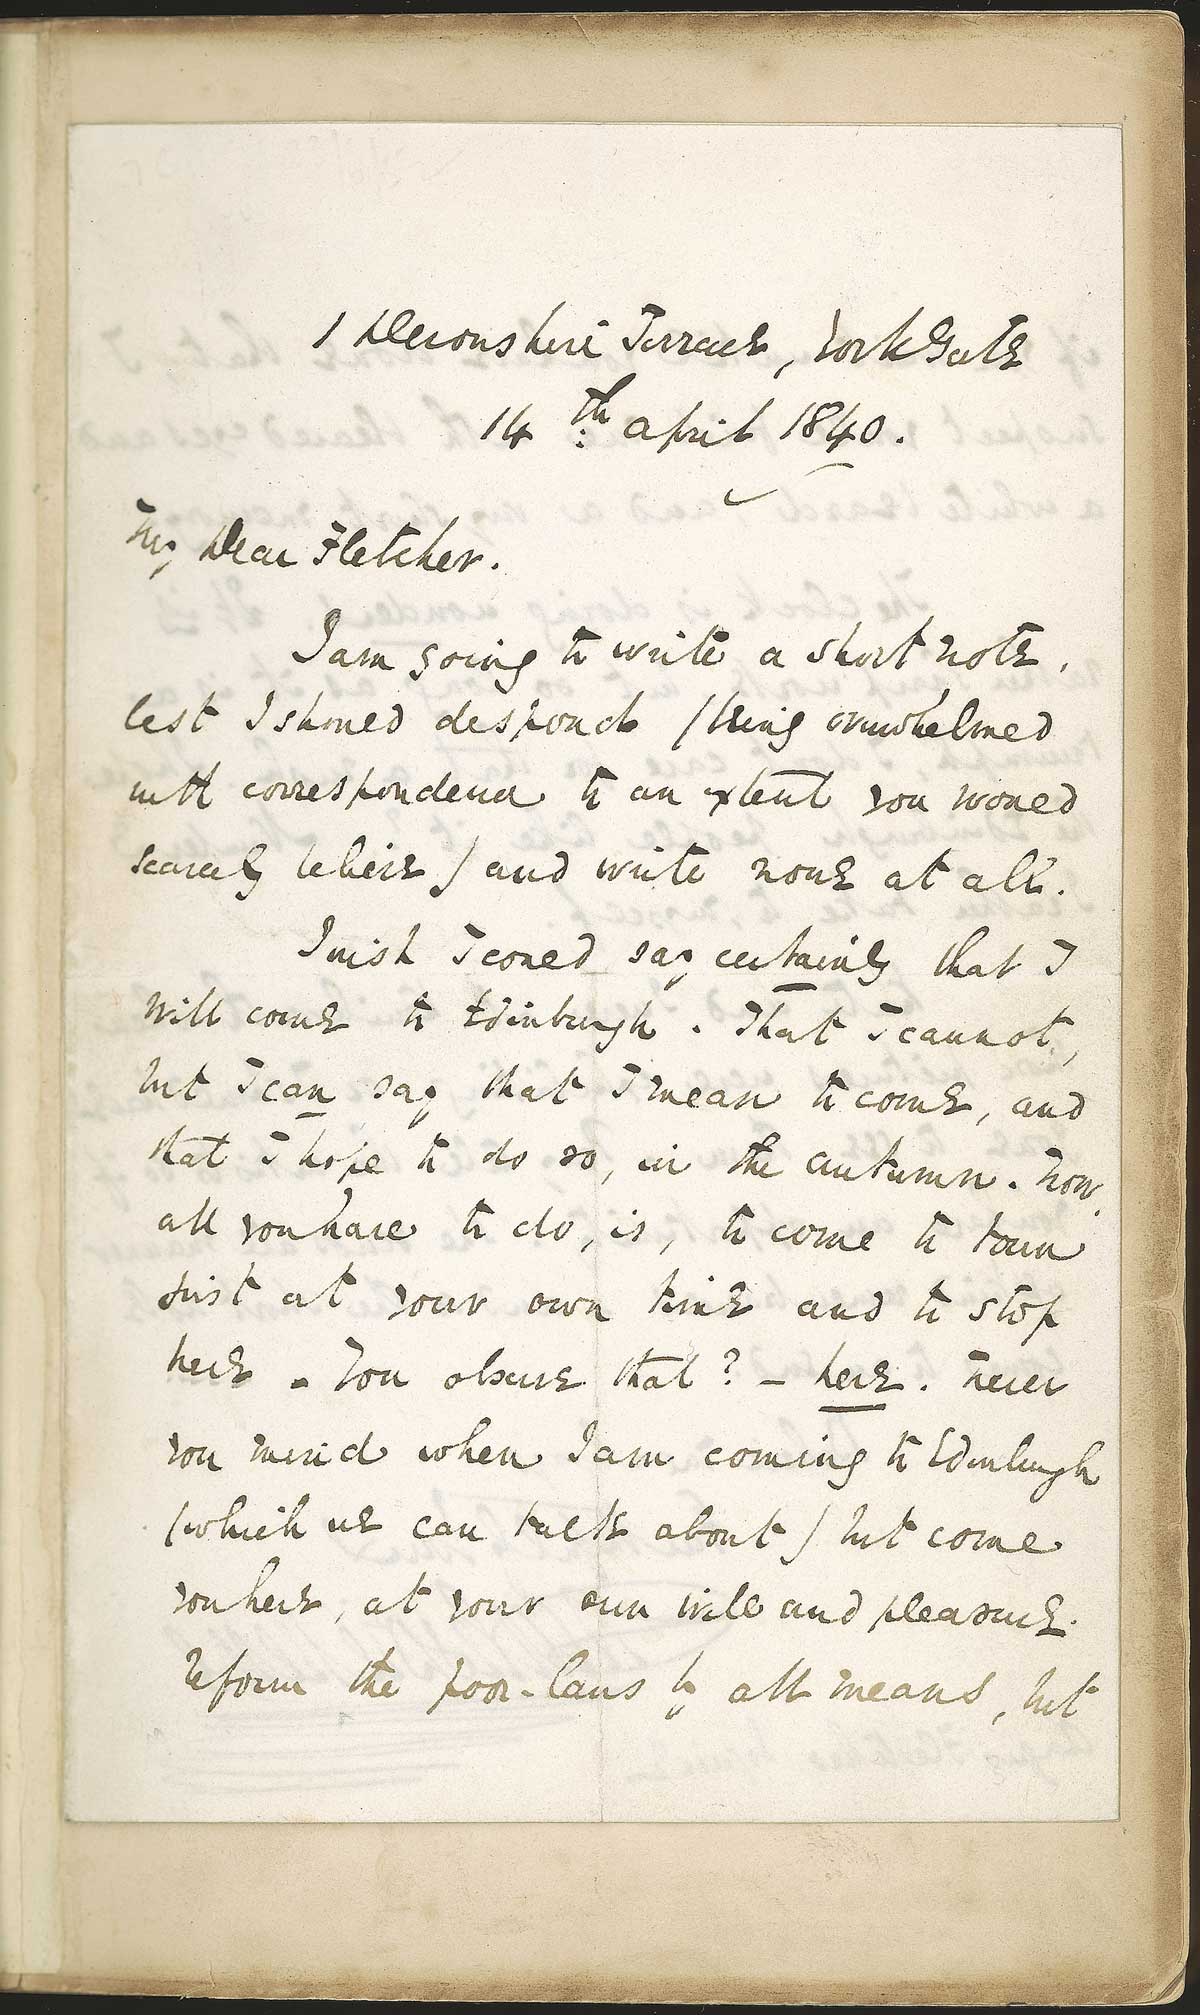 1 Devonshire Terrace, York Gate
14th. April 1840.
My Dear Fletcher.
I am going to write a short note,
lest I should despond (being overwhelmed
with correspondence to an extent you would
scarcely believe) and write none at all.
I wish I could say certainly that I
will come to Edinburgh. That I cannot,
but I can say that I mean to come, and
that I hope to do so, in the autumn. Now,
all you have to do, is, to come to town
just at your own time and to stop
here - You observe that? - here. Never
you mind when I am coming to Edinburgh
(which we can talk about) but come
you here, at your own will and pleasure.
Reform the poor-laws by all means, but